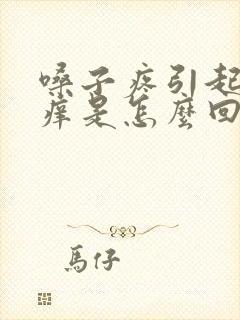 嗓子疼引起
痒是怎麼回
馬仔